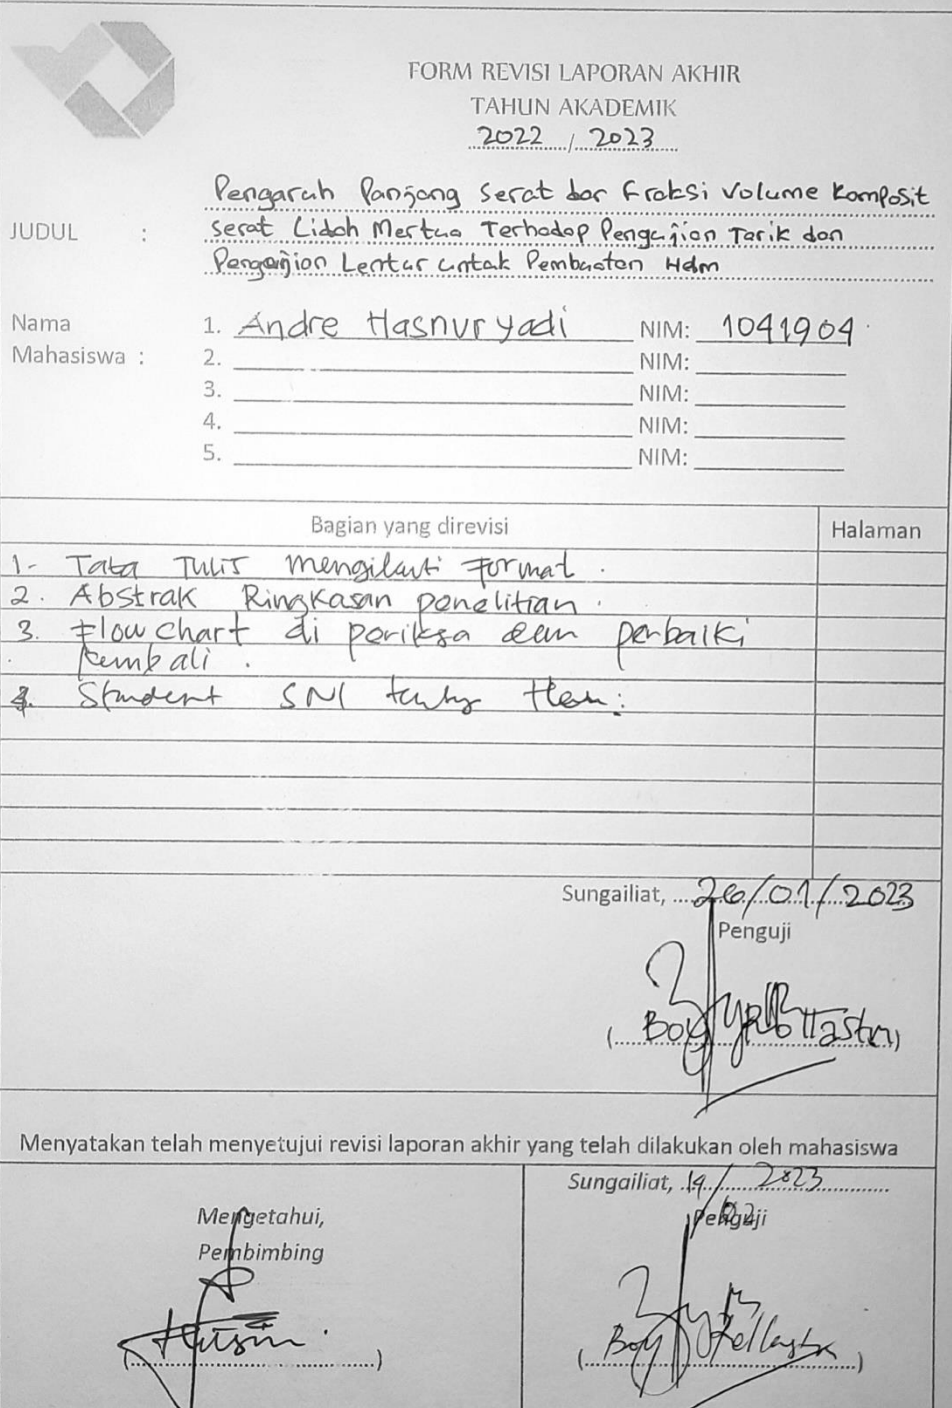 FORM REVISI LAPORAN AKHIR
TAHUN AKADEMIK
2022 / 2023
JUDUL : Pengaruh Panjang Serat dan Fraksi Volume Komposit
Serat Lidah Mertua Terhadap Pengujian Tarik dan
Pengujian Lentur untuk Pembuatan Helm
Nama
Mahasiswa :
1. Andre Hasnuryadi NIM: 1041904
2. NIM:
3. NIM:
4. NIM:
5. NIM:
Bagian yang direvisi Halaman
1- Tata Tulis mengikuti Format.
2. Abstrak Ringkasan penelitian.
3. Flowchart di periksa dan perbaiki
kembali.
4. SNI
Sungailiat, 26/01/2023
Penguji
(Boy)
Menyatakan telah menyetujui revisi laporan akhir yang telah dilakukan oleh mahasiswa
Mengetahui,
Pembimbing
(Husin)
Sungailiat, 19/ 2023
Penguji
(Boy)